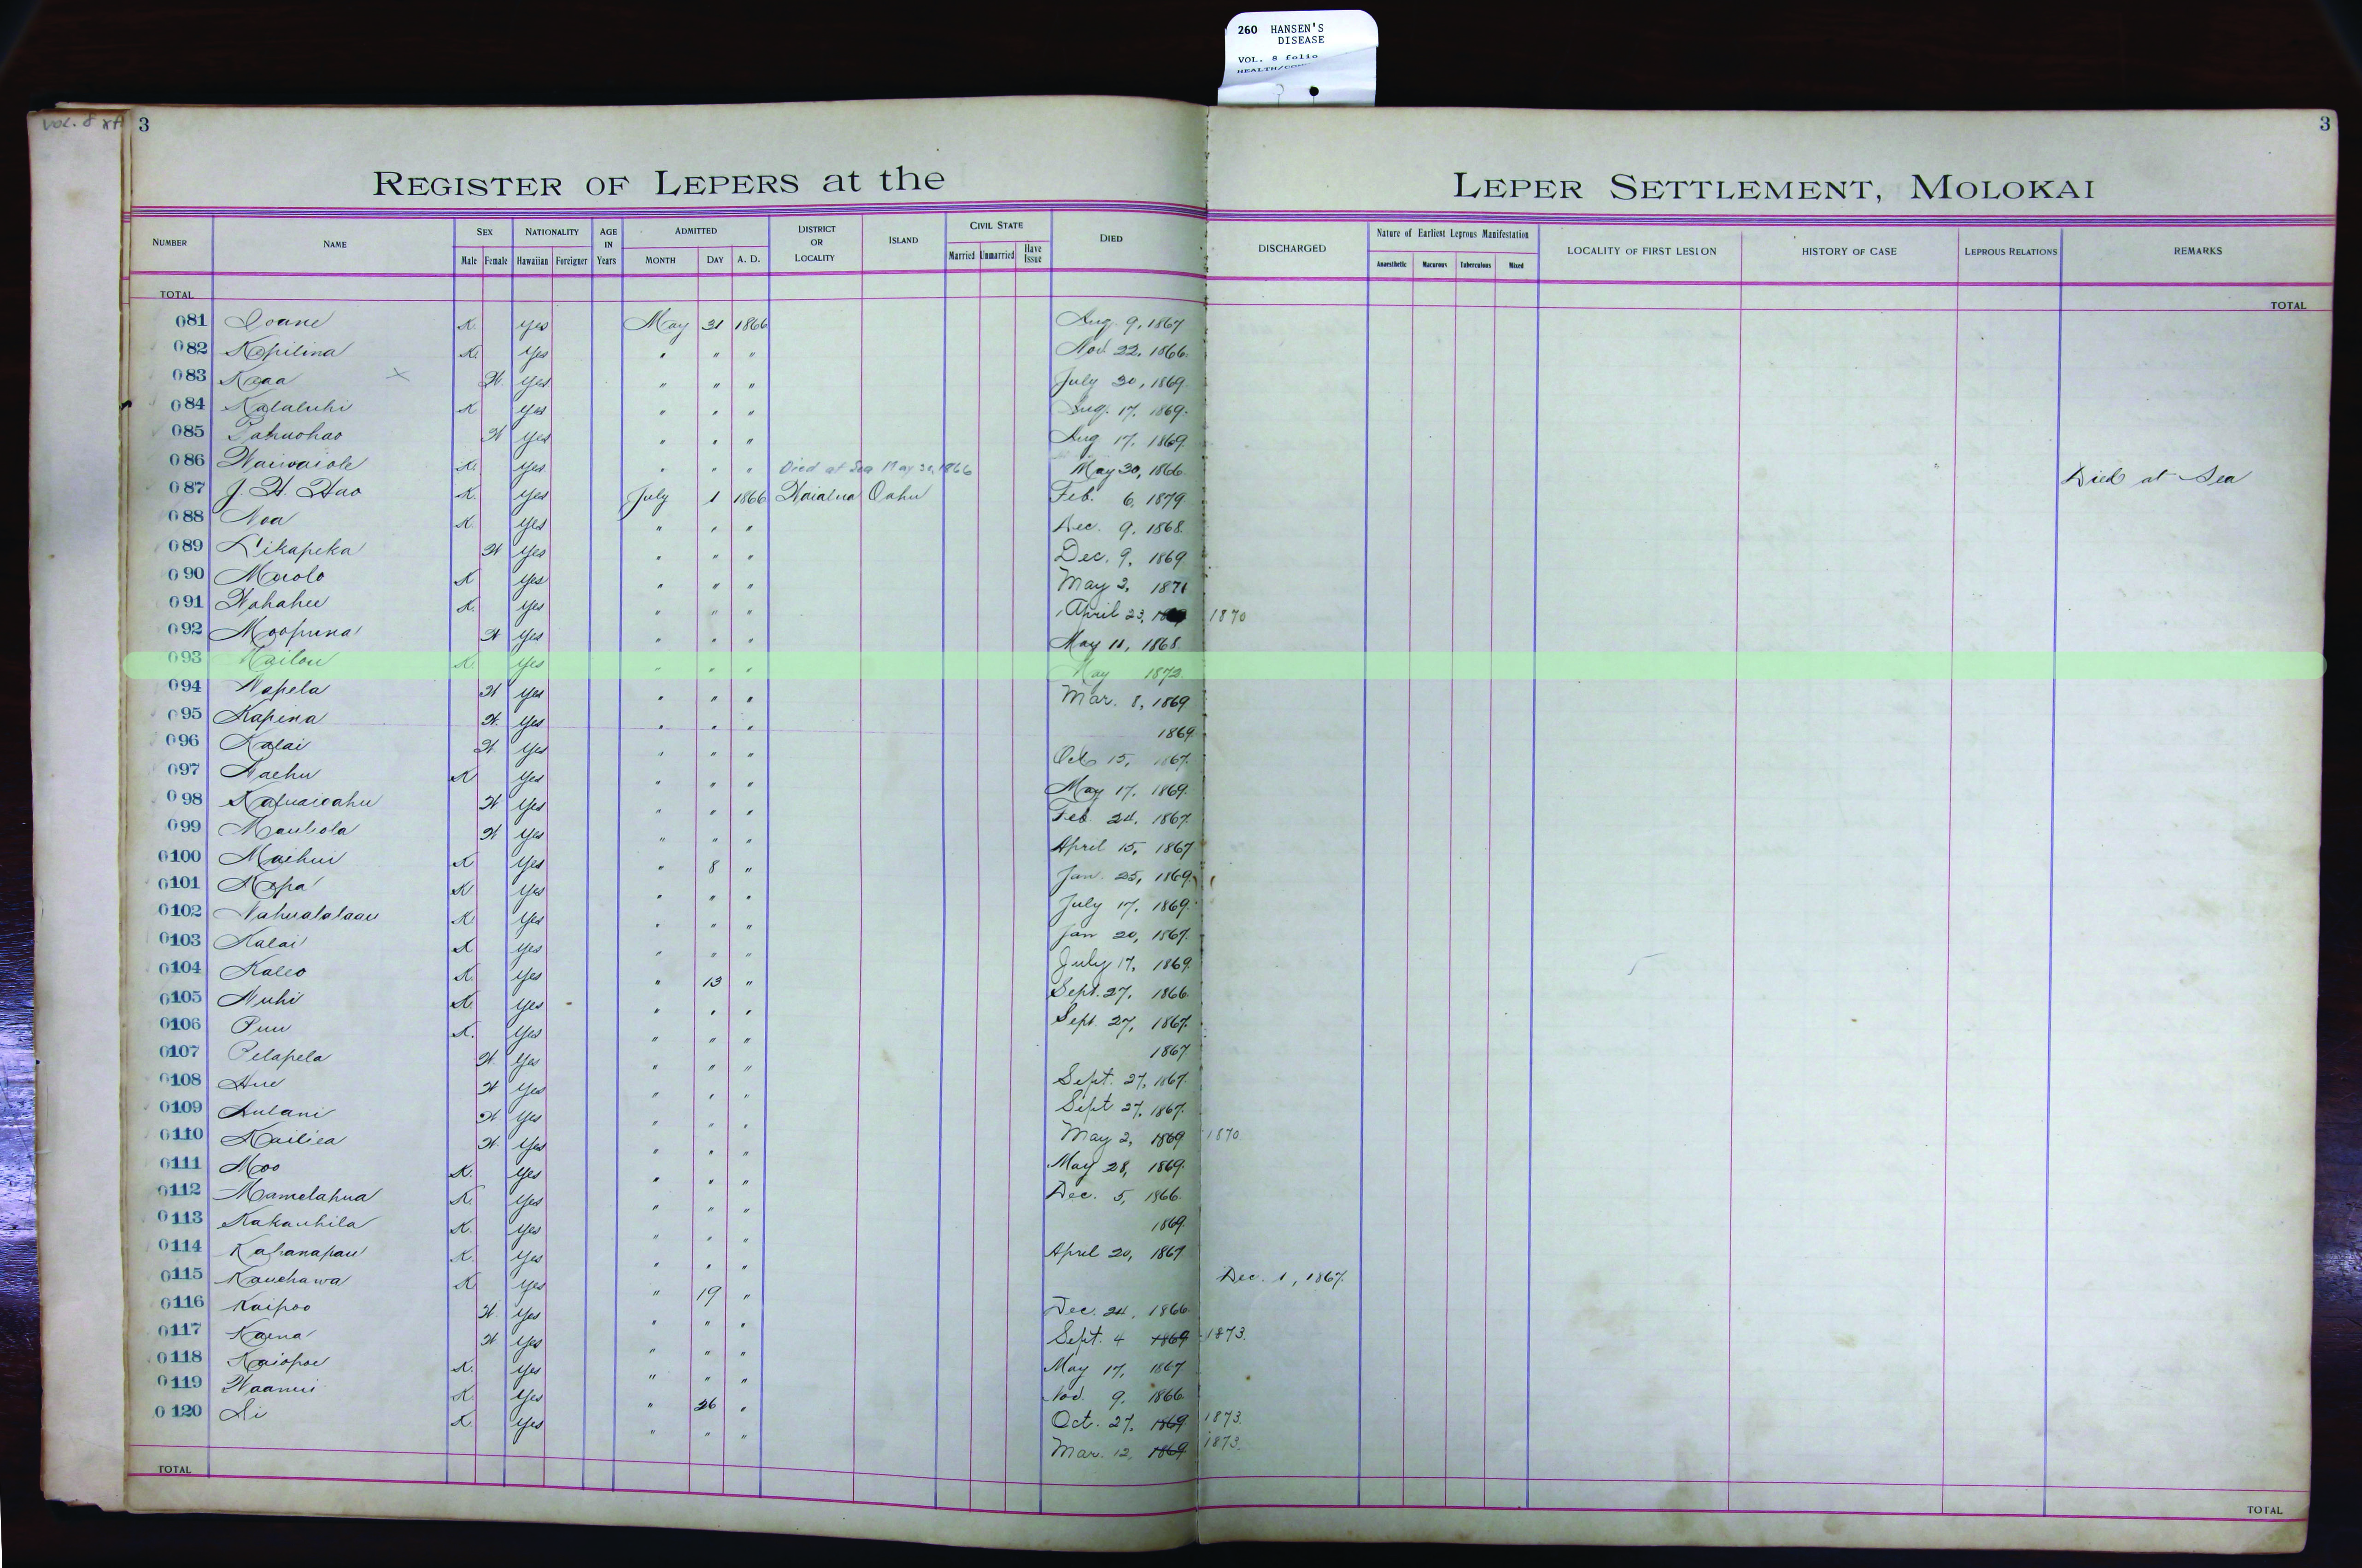 260 HANSEN'S
DISEASE
VOL. 8 folio
VOL. 8
3
3
REGISTER OF LEPERS at the LEPER SETTLEMENT, MOLOKAI
NUMBER NAME SEX Male Female NATIONALITY Hawaiian Foreigner AGE IN Years ADMITTED MONTH DAY A. D. DISTRICT OR LOCALITY ISLAND CIVIL STATE Married Unmarried Have Issue DIED DISCHARGED Nature of Earliest Leprous Manifestation Anaesthetic Macurous Tuberculous Mixed LOCALITY OF FIRST LESION HISTORY OF CASE LEPROUS RELATIONS REMARKS
TOTAL TOTAL
081 Ioane K. Yes May 31 1866 Aug. 9, 1867
082 Kapilina K. Yes " " " Nov. 22, 1866
083 Kaaa W. Yes " " " July 30, 1869
084 Kalaluhi K Yes " " " Aug. 17, 1869.
085 W Yes " " " Aug 17, 1869.
086 Waiwaiole K. Yes " " " Died at Sea May 30, 1866 May 30, 1866 Died at Sea
087 J. H. Hao K. Yes July 1 1866 Waialua Oahu Feb. 6, 1879
088 Noa K. Yes " " " Dec. 9, 1868.
089 Likapeka W Yes " " " Dec. 9, 1869
090 K Yes " " " May 2, 1871
091 Wahahee K. Yes " " " April 23, 1870
092 Moopuna W Yes " " " May 11, 1868
093 Kailou K. Yes " " " May 1872
094 Napela W Yes " " " Mar. 8, 1869
095 Kapina W. Yes " " " 1869
096 Kalai W Yes " " " Oct 15, 1867
097 Naehu K Yes " " " May 17, 1869
098 W Yes " " " Feb. 24, 1867
099 Maulola W Yes " " " April 15, 1867
0100 Maihui K Yes " 8 " Jan. 25, 1869
0101 Mapa K Yes " " " July 17, 1869
0102 Nahualalaau K Yes " " " Jan 20, 1867
0103 Kalai K Yes " " " July 17, 1869
0104 Kaleo K. Yes " 13 " Sept. 27, 1866
0105 Nuhi K. Yes " " " Sept. 27, 1867
0106 Puu K. Yes " " " 1867
0107 Pelapela W Yes " " " Sept. 27, 1867
0108 Hue W Yes " " " Sept 27, 1867
0109 Aulani W Yes " " " May 2, 1869 1870
0110 Kailiea W. Yes " " " May 28, 1869
0111 Moo K. Yes " " " Dec. 5, 1866
0112 Mamelahua K. Yes " " " 1869
0113 Kakauhila K. Yes " " " April 20, 1867
0114 Kahanapau K. Yes " " " Dec. 1, 1867
0115 Kauehawa K. Yes " 19 " Dec. 24, 1866
0116 Kaipoo W Yes " " " Sept. 4 1869 1873.
0117 Kaena W Yes " " " May 17, 1867
0118 Kaiopoe K. Yes " " " Nov. 9, 1866
0119 Waanui K. Yes " 26 " Oct. 27, 1869 1873.
0120 Ai K. Yes " " " Mar. 12, 1869 1873.
TOTAL TOTAL